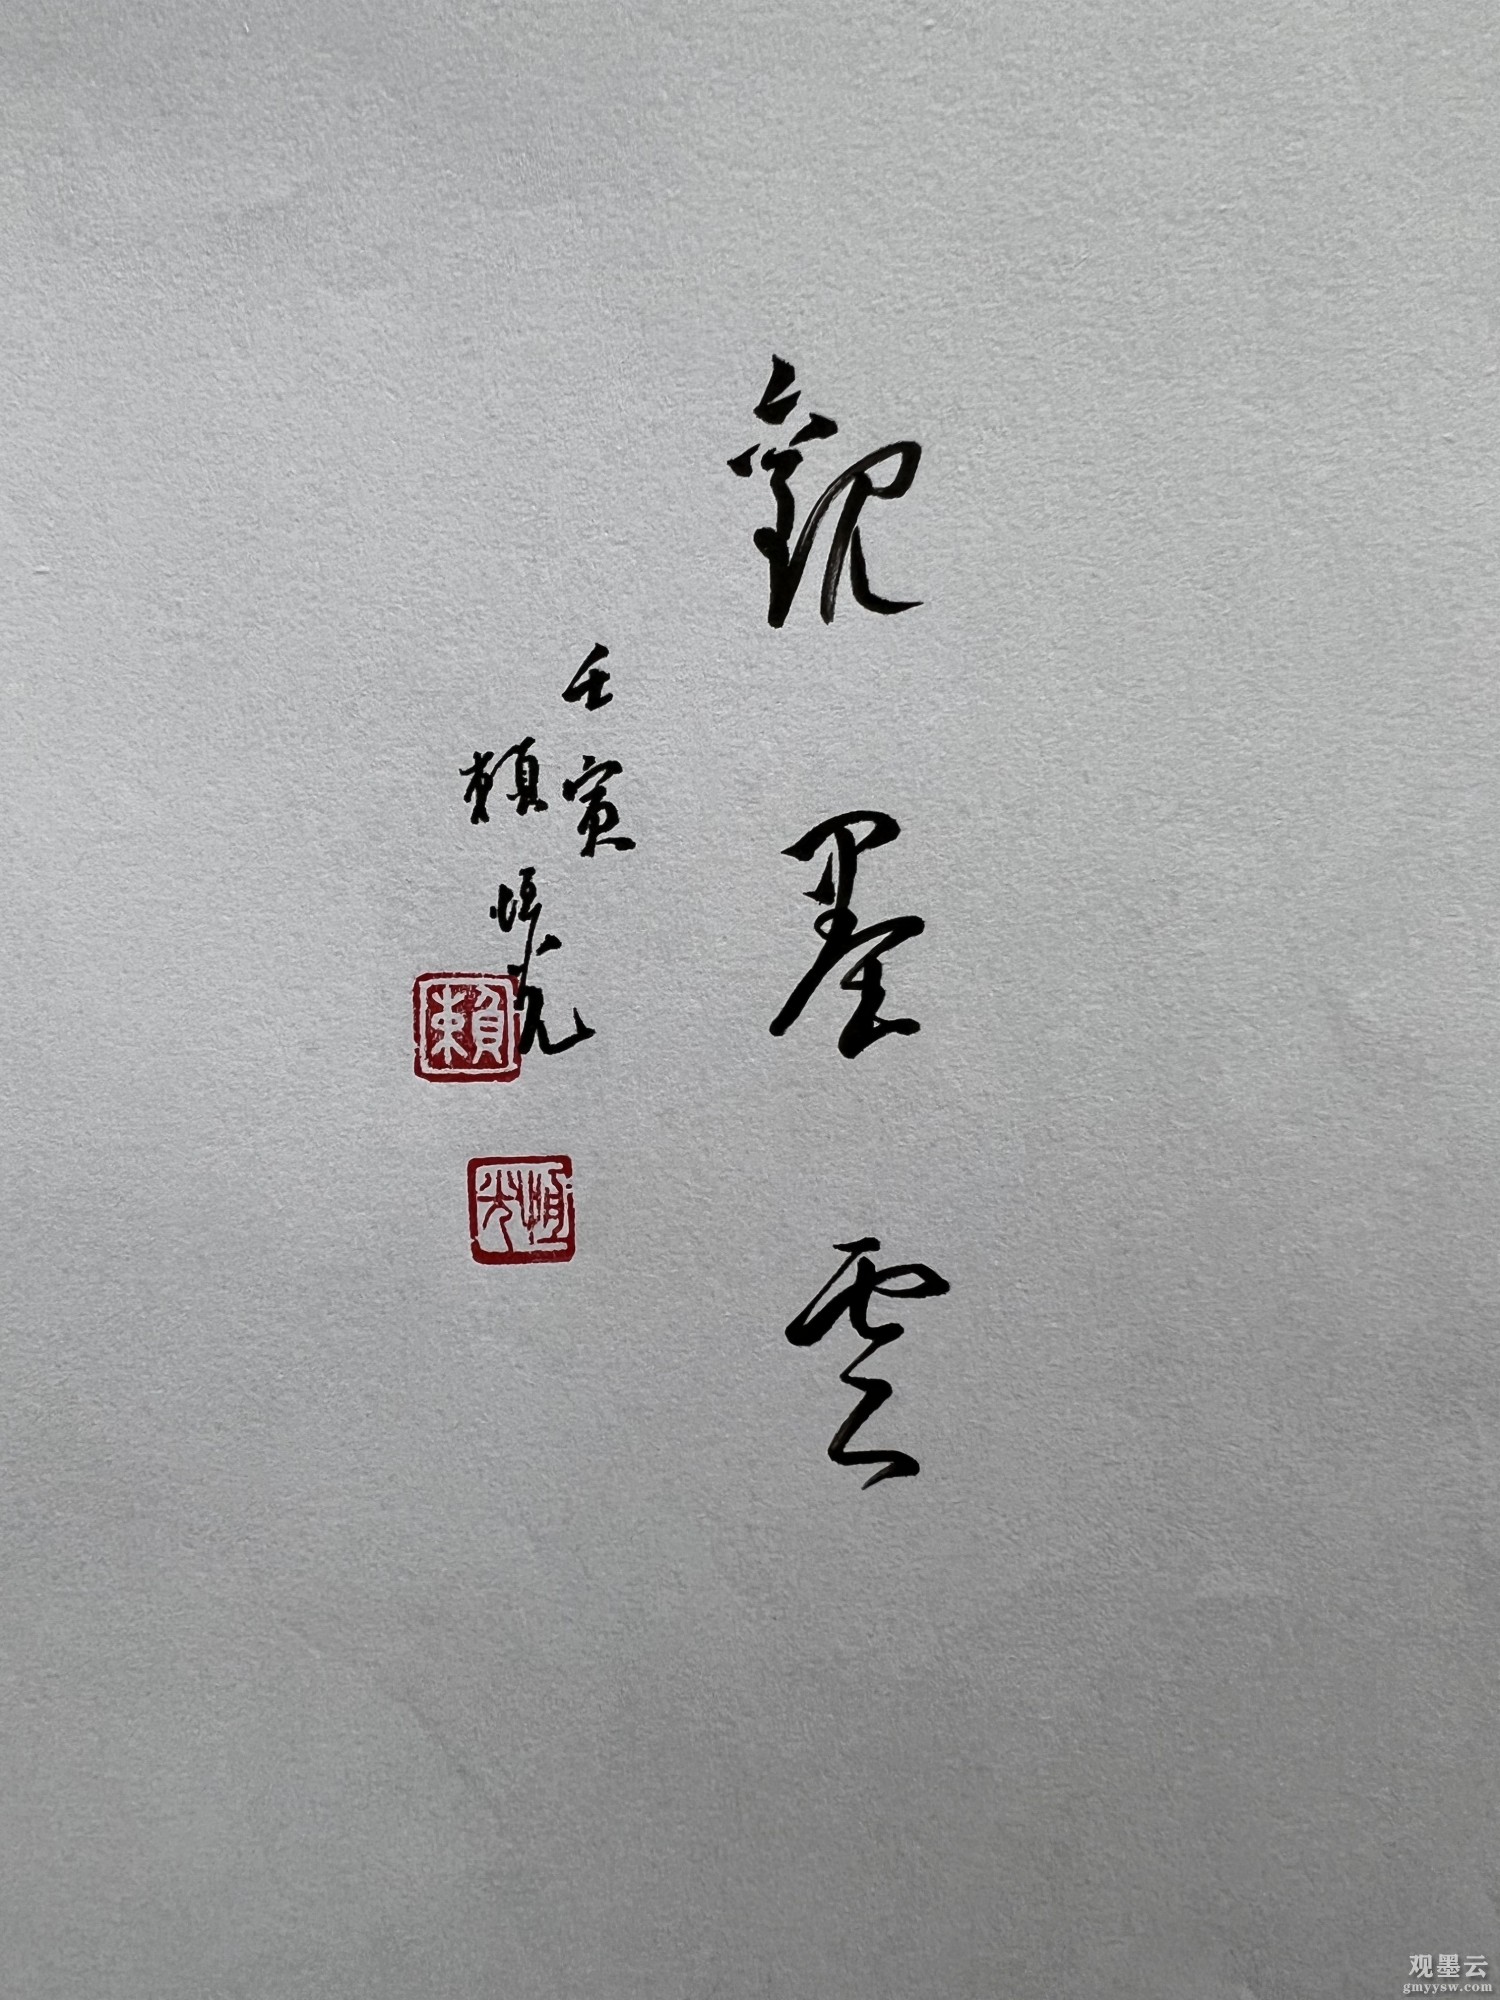 觀墨雲
壬寅
賴恒光
賴
恒光
观墨云
gmyysw.com